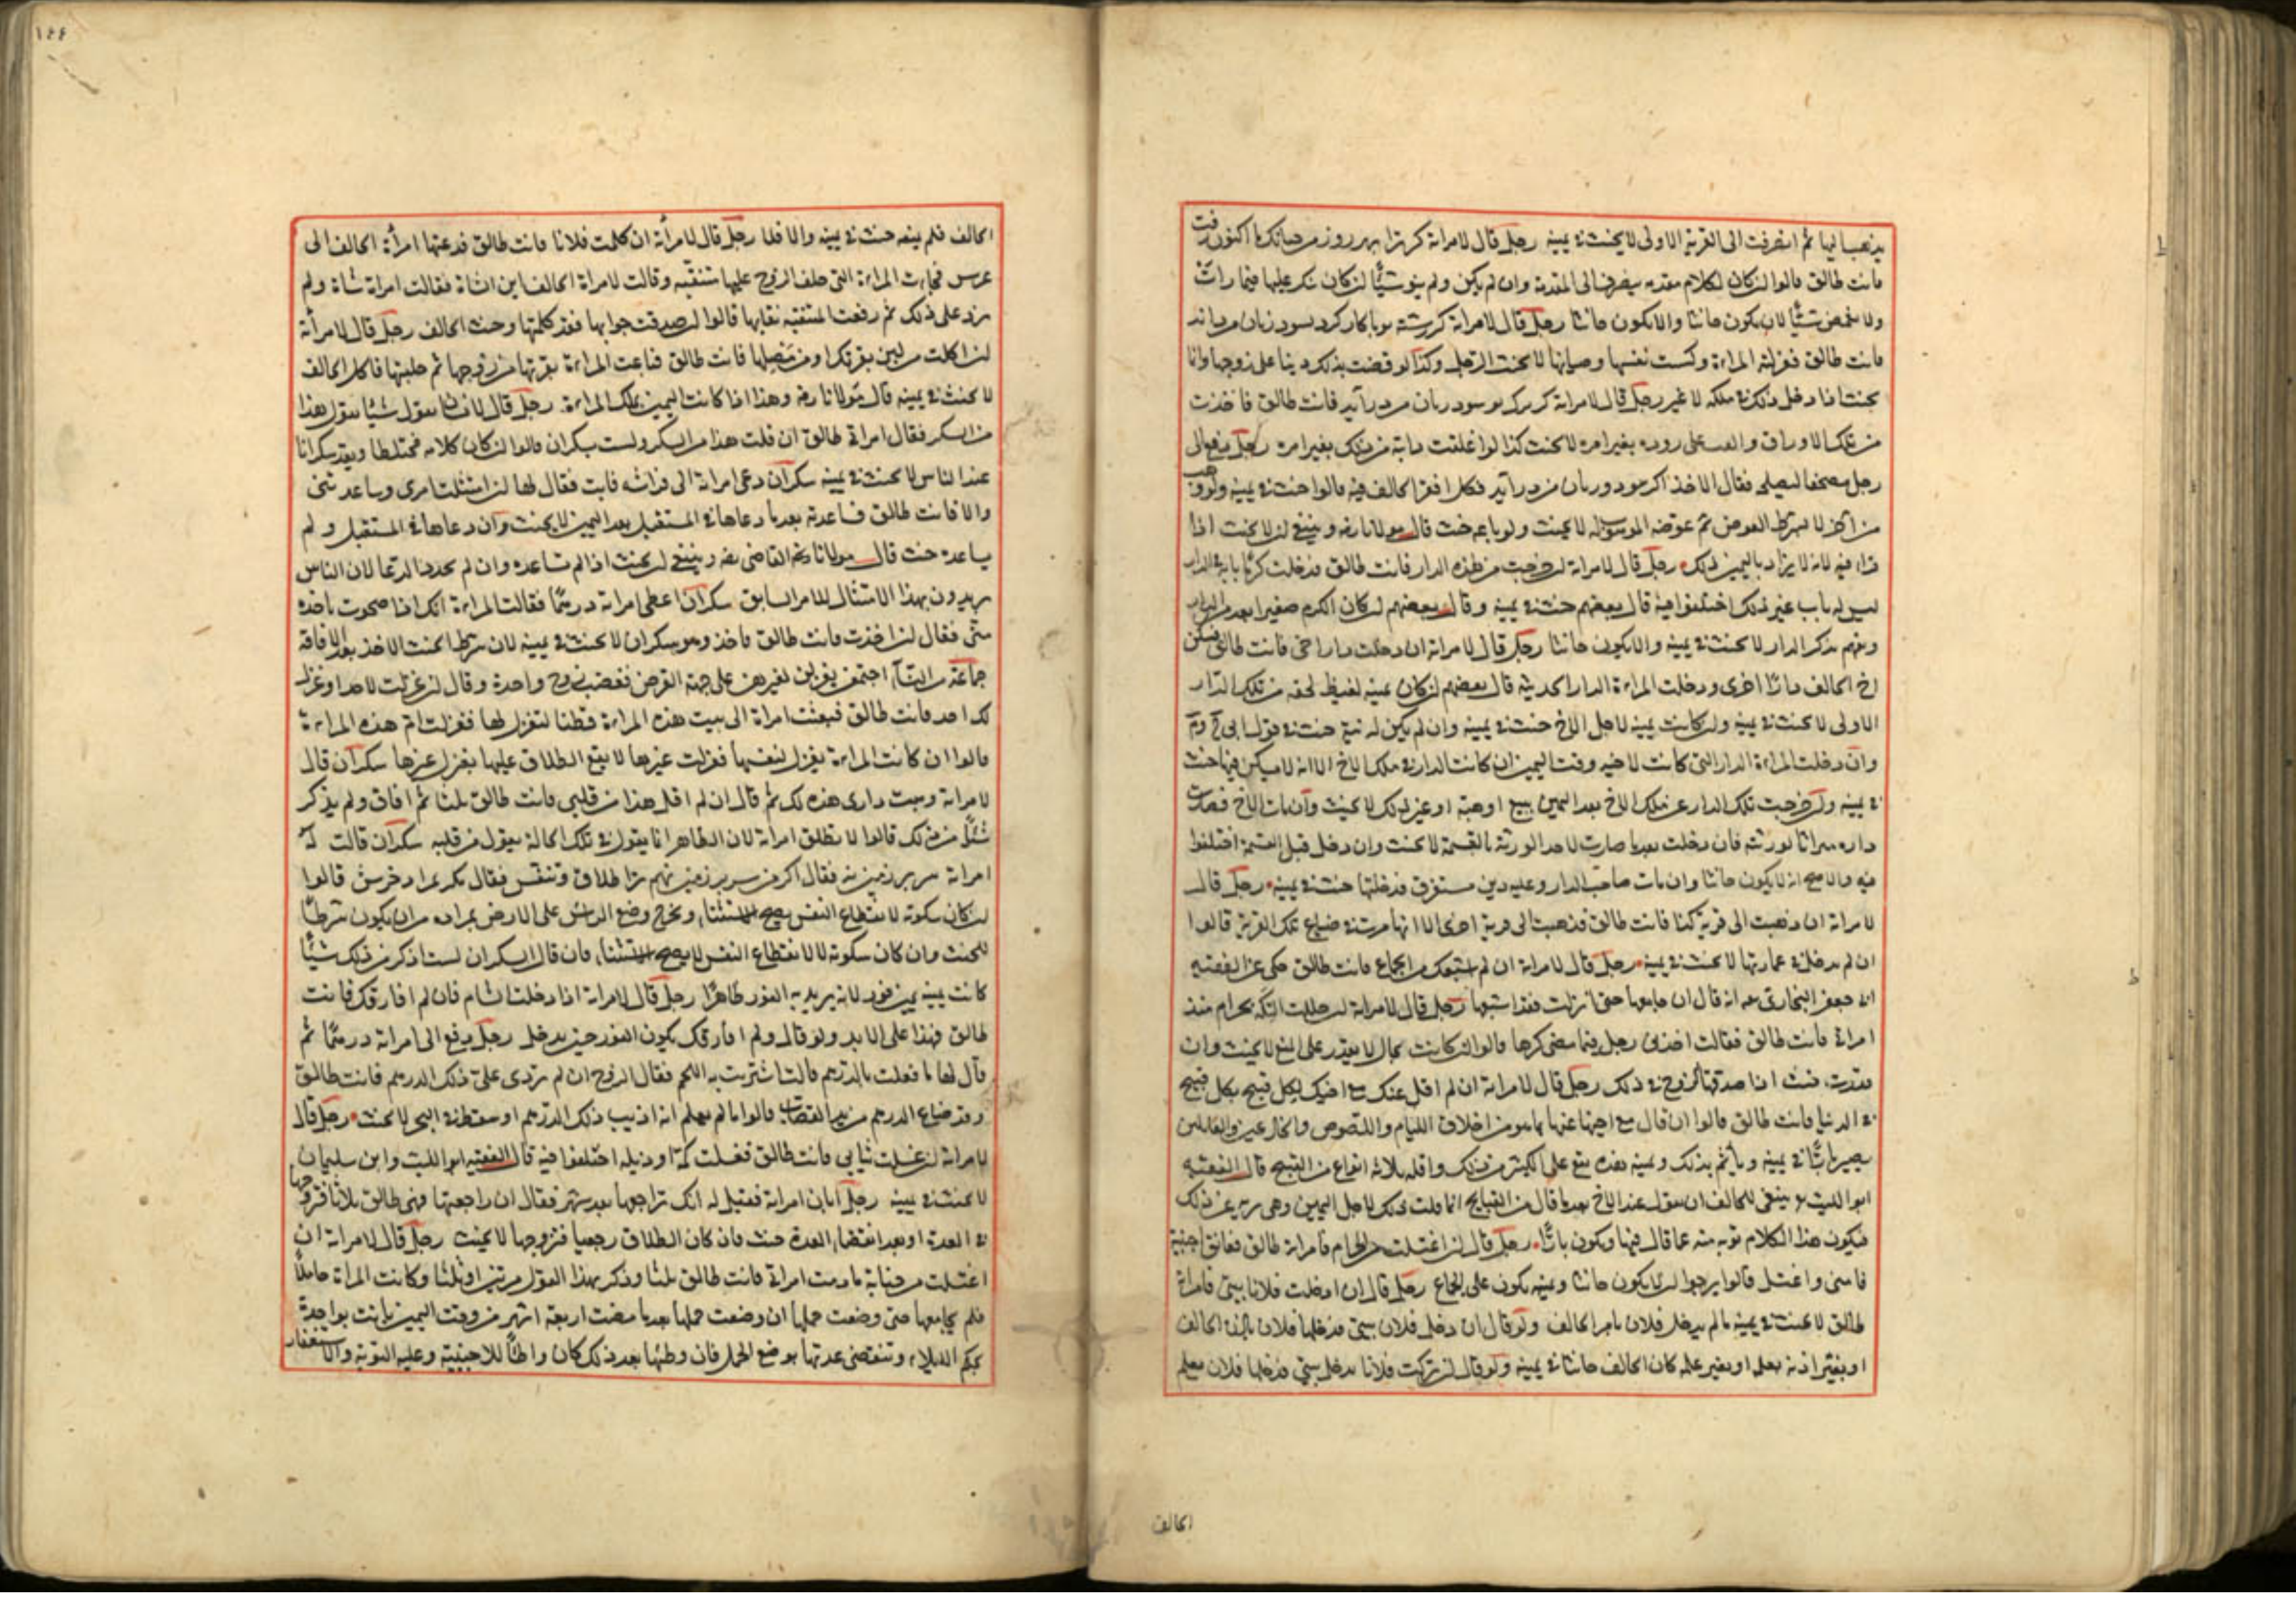 يذهب اليها ثم انصرفت الى القرية الاولى لا يحنث في يمينه رجل قال لامراته
فانت طالق قالوا ان كان لكلام مقدمة ينصرف الى المقدمة وان لم يكن ولم ينو شيئا ان كان
ولا شيئا لا يكون حانثا والا يكون حانثا رجل قال لامراته
فانت طالق فغزلت المراءة وكست نفسها وصبيانها لا يحنث الرجل وكذا لو قضت بذلك دينا على زوجها وانما
يحنث اذا دخل ذلك في ملكه لا غير رجل قال لامراته فانت طالق فاخذت
من تلك الاوراق بغير امره لا يحنث كذا لو اعلفت دابة من ذلك بغير امره رجل
رجل مصحفا ليصلحه فقال الاخذ الحالف فيه قالوا حنث في يمينه ولو وهب
لا بشرط العوض ثم عوضه الموهوب له لا يحنث ولو باعه حنث قال مولانا رضه وينبغي ان لا يحنث اذا
لانه لا يراد باليمين ذلك رجل قال لامراته ان خرجت من هذه الدار فانت طالق فدخلت كرما بابه في الدار
ليس له باب غير ذلك اختلفوا فيه قال بعضهم حنث في يمينه وقال بعضهم ان كان الكرم صغيرا
بذكر الدار لا يحنث في يمينه والا يكون حانثا رجل قال لامراته ان دخلت دار اخي فانت طالق فسكن
اخ الحالف دارا اخرى ودخلت المراءة الدار الحديثة قال بعضهم ان كان يمينه لغيظ لحقه من تلك الدار
الاولى لا يحنث في يمينه وان كانت يمينه لاجل الاخ حنث في يمينه وان لم يكن له نية حنث في قول ابي ح وم
وان دخلت المراءة الدار التي كانت لاخيه وقت اليمين ان كانت الدار في ملك الاخ الا انه لا يسكن فيها حنث
في يمينه وان خرجت تلك الدار عن ملك الاخ بعد اليمين ببيع او هبة او غير ذلك لا يحنث وان مات الاخ فصارت
داره ميراثا لورثته فان دخلت بعد ما صارت لاحد الورثة بالقسمة لا يحنث وان دخل قبل القسمة اختلفوا
فيه والاصح انه لا يكون حانثا وان مات صاحب الدار وعليه دين مستغرق فدخلتها حنث في يمينه رجل قال
لامراته ان ذهبت الى قرية كذا فانت طالق فذهبت الى قرية اخرى الا انها مرت في ضياع تلك القرية قالوا
ان لم يدخل في عمارتها لا يحنث في يمينه رجل قال لامراته ان لم اشبعك من الجماع فانت طالق حكي عن الفقيه
ابي جعفر البخاري انه قال ان جامعها حتى انزلت فقد اشبعها رجل قال لامراته ان حللت التكة بحرام منذ
امراة فانت طالق فقالت اخذني رجل فيما مضى كرها قالوا ان كانت بحال لا يقدر على المنع لا يحنث وان
قدرت حنث اذا صدقها الزوج في ذلك رجل قال لامراته ان لم اقل عنك مع اخيك بكل قبيح
في الدنيا فانت طالق قالوا ان قال مع اخيها عنها ما هو من اخلاق الليام واللصوص
يصير بارا في يمينه وياثم بذلك ويمينه هذه يقع على الكثير من ذلك واقله ثلاثة انواع من القبيح قال الفقيه
ابو الليث ينبغي للحالف ان يقول عند الاخ بعد ما قال من القبايح انما قلت ذلك لاجل اليمين وهي برية عن ذلك
فيكون هذا الكلام توبة منه عما قال فيها ويكون بارا رجل قال ان اغتسلت من الحرام فامراته طالق فعانق اجنبية
فامنى واغتسل قالوا يرجوا ان لا يكون حانثا ويمينه يكون على الجماع رجل قال ان ادخلت فلانا بيتي فامراته
طالق لا يحنث في يمينه ما لم يدخل فلان بامر الحالف ولو قال ان دخل فلان بيتي فدخلها فلان باذن الحالف
او بغير اذنه بعلمه او بغير علمه كان الحالف حانثا في يمينه ولو قال ان تركت فلانا يدخل بيتي فدخلها فلان بعلم
الحالف
١٤٤
الحالف فلم يمنعه حنث في يمينه والا فلا رجل قال لامرأته ان كلمت فلانا فانت طالق فدعتها امرأة الحالف الى
عرس فجاءت المراءة التي حلف الزوج عليها متنقبة وقالت لامراة الحالف اين الشاة فقالت امراة شاة ولم
تزد على ذلك ثم رفعت المتنقبة نقابها قالوا ان صدقت جوابها فقد كلمتها وحنث الحالف رجل قال لامرأته
ان اكلت من لبن بقرتك او من مصلها فانت طالق فباعت المراءة بقرتها من زوجها ثم حلبتها فاكل الحالف
لا يحنث في يمينه قال مولانا رضه وهذا اذا كانت اليمين بملك المراءة رجل قال لانسان يقول شيئا يقول هذا
من السكر فقال امراتي طالق ان قلت هذا من السكر ولست بسكران قالوا ان كان كلامه مختلطا ويعد سكرانا
عند الناس لا يحنث في يمينه سكران دعى امراته الى فراشه فابت فقال لها ان امتثلت امري وساعدتني
والا فانت طالق فساعدته بعد ما دعاها في المستقبل بعد اليمين لا يحنث وان دعاها في المستقبل ولم
يساعده حنث قال مولانا القاضي رضه وينبغي ان يحنث اذا لم تساعده وان لم يجدد الدعا لان الناس
يريدون بهذا الامتثال للامر السابق سكران اعطى امراته درهما فقالت المراءة انك اذا صحوت تاخذه
مني فقال ان اخذت فانت طالق فاخذ وهو سكران لا يحنث في يمينه لان شرط الحنث الاخذ بعد الافاقة
جماعة من النسآء اجتمعن يغزلن لغيرهن على جهة القرض فغضب زوج واحدة وقال ان غزلت لاحد او غزل
لك احد فانت طالق فبعثت امراة الى بيت هذه المراءة قطنا لتغزل لها فغزلت ام هذه المراءة
قالوا ان كانت المراءة بغزل لنفسها فغزلت غيرها لا يقع الطلاق عليها بغزل غيرها سكران قال
لامراته وهبت داري هذه لك ثم قال ان لم اقل هذا من قلبي فانت طالق ثلثا ثم افاق ولم يذكر
شيئا من ذلك قالوا لا تطلق امراته لان الظاهر انما يقول في تلك الحالة يقول من قلبه سكران قالت له
امراته سر بر زمين نه فقال اكر من سر بر زمين نهم ترا طلاق وتنفس فقال قالوا
ان كان سكوته لانقطاع النفس يصح الاستثناء ويخرج وضع الراس على الارض بمراده من ان يكون شرطا
للحنث وان كان سكوته لا لانقطاع النفس لا يصح الاستثناء فان قال السكران لست اذكر من ذلك شيئا
كانت يمينه يمين فور لانه يريد به الفور ظاهرا رجل قال لامراته اذا دخلت الشام فان لم افارقك فانت
طالق فهذا على الابد ولو قال ولم افارقك يكون الفور حين يدخل رجل دفع الى امراته درهما ثم
قال لها ما فعلت بالدرهم قالت اشتريت به اللحم فقال الزوج ان لم تردي علي ذلك الدرهم فانت طالق
وقد ضاع الدرهم من يد القصاب قالوا ما لم يعلم انه اذيب ذلك الدرهم او سقط في البحر لا يحنث رجل قال
لامراته ان غسلت ثيابي فانت طالق فغسلت كمه او ذيله اختلفوا فيه قال الفقيه ابو الليث وابن سليمان
لا يحنث في يمينه رجل ابان امراته فقيل له انك تراجعها بعد شهر فقال ان راجعتها فهي طالق ثلاثا فتزوجها
في العدة او بعد انقضاء العدة حنث فان كان الطلاق رجعيا فتزوجها لا يحنث رجل قال لامراته ان
اغتسلت من جنابة ما دمت امراتي فانت طالق ثلثا وذكر بهذا القول مرتين او ثلثا وكانت المراة حاملا
فلم يجامعها حتى وضعت حملها ان وضعت حملها بعد ما مضت اربعة اشهر من وقت اليمين بانت بواحدة
بحكم الايلاء وتنقضي عدتها بوضع الحمل فان وطئها بعد ذلك كان واطئا للاجنبية وعليه التوبة والاستغفار